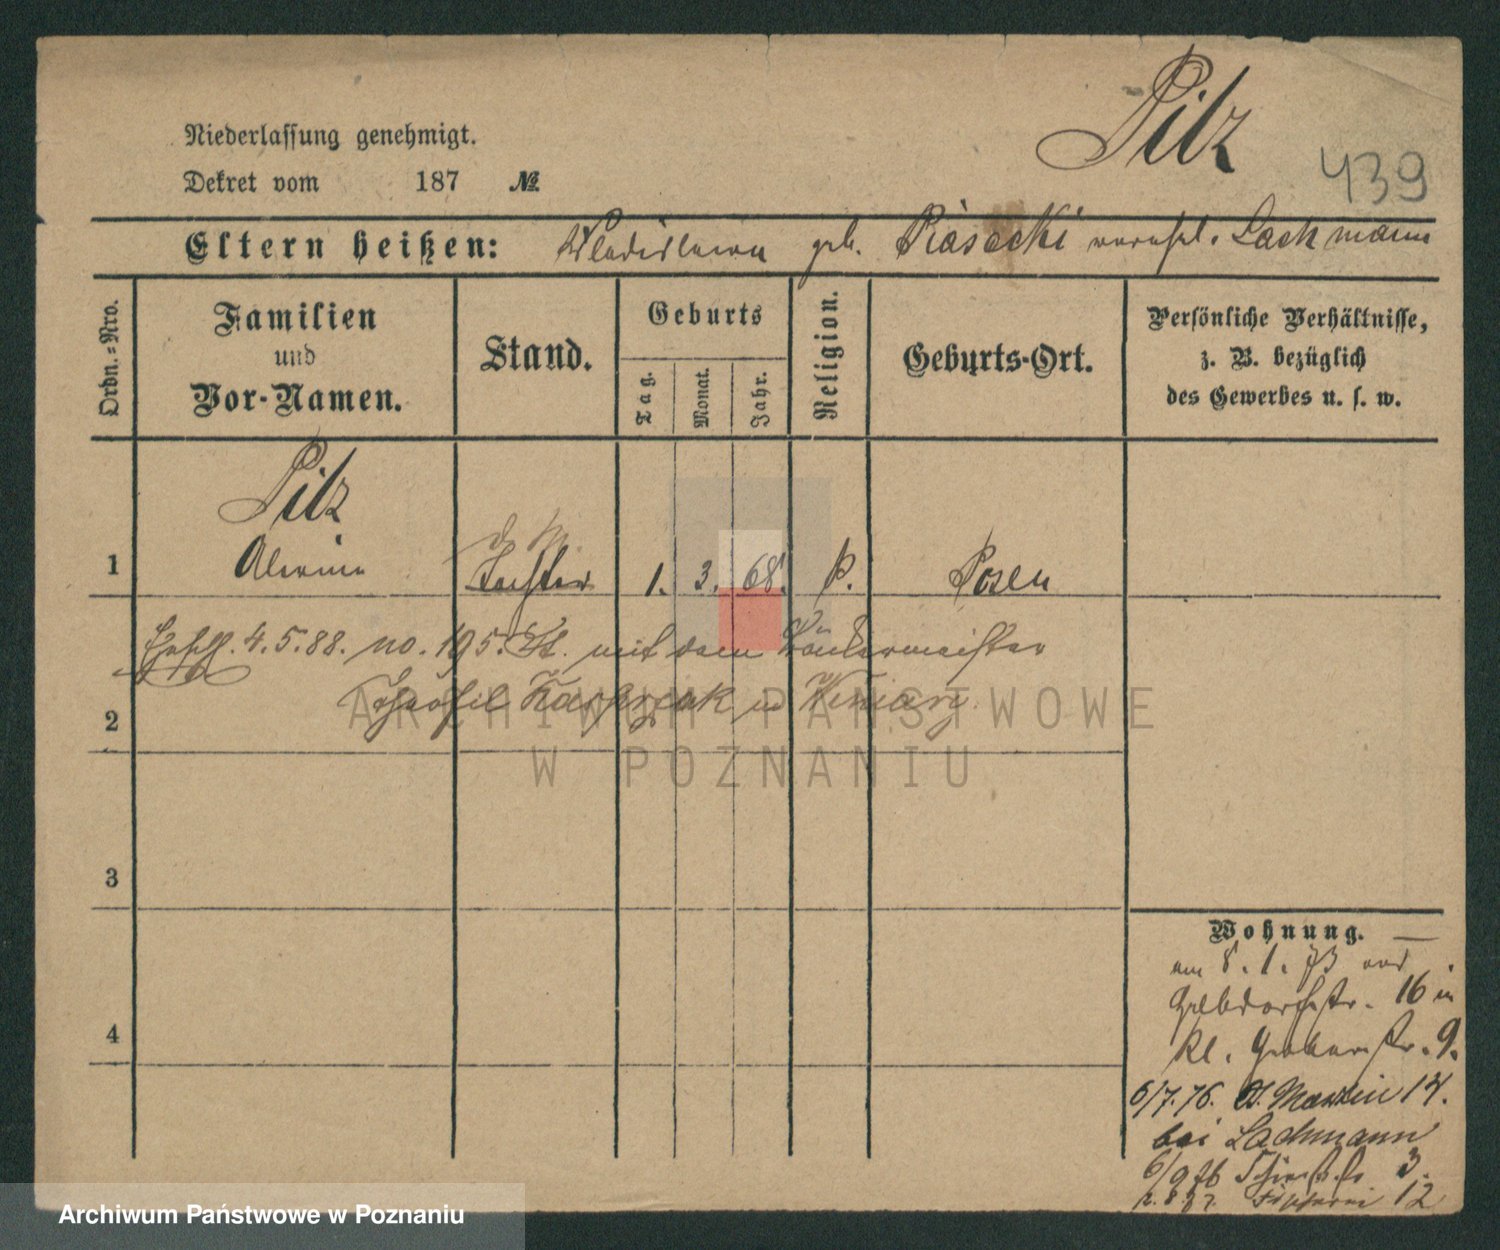 Pilz
439
Niederlassung genehmigt.
Dekret vom 187 №
Eltern heißen: Wladislawa geb. Piasecki verehel. Lachmann
Ordn.=Nro.
Familien
und
Vor-Namen.
Stand.
Geburts
Tag.
Monat.
Jahr.
Religion.
Geburts-Ort.
Persönliche Verhältnisse,
z. B. bezüglich
des Gewerbes u. s. w.
Pilz
1 Tochter 1. 3. 68. Posen
4.5.88. no. 195. St. mit dem
2 Kasprzak
3
4
Wohnung.
am 8. 1. 73 von
16 in
kl. Gerberstr. 9.
6/7.76. St. Martin 14.
bei Lachmann
6/9 76 3.
12
ARCHIWUM PAŃSTWOWE
W POZNANIU
Archiwum Państwowe w Poznaniu